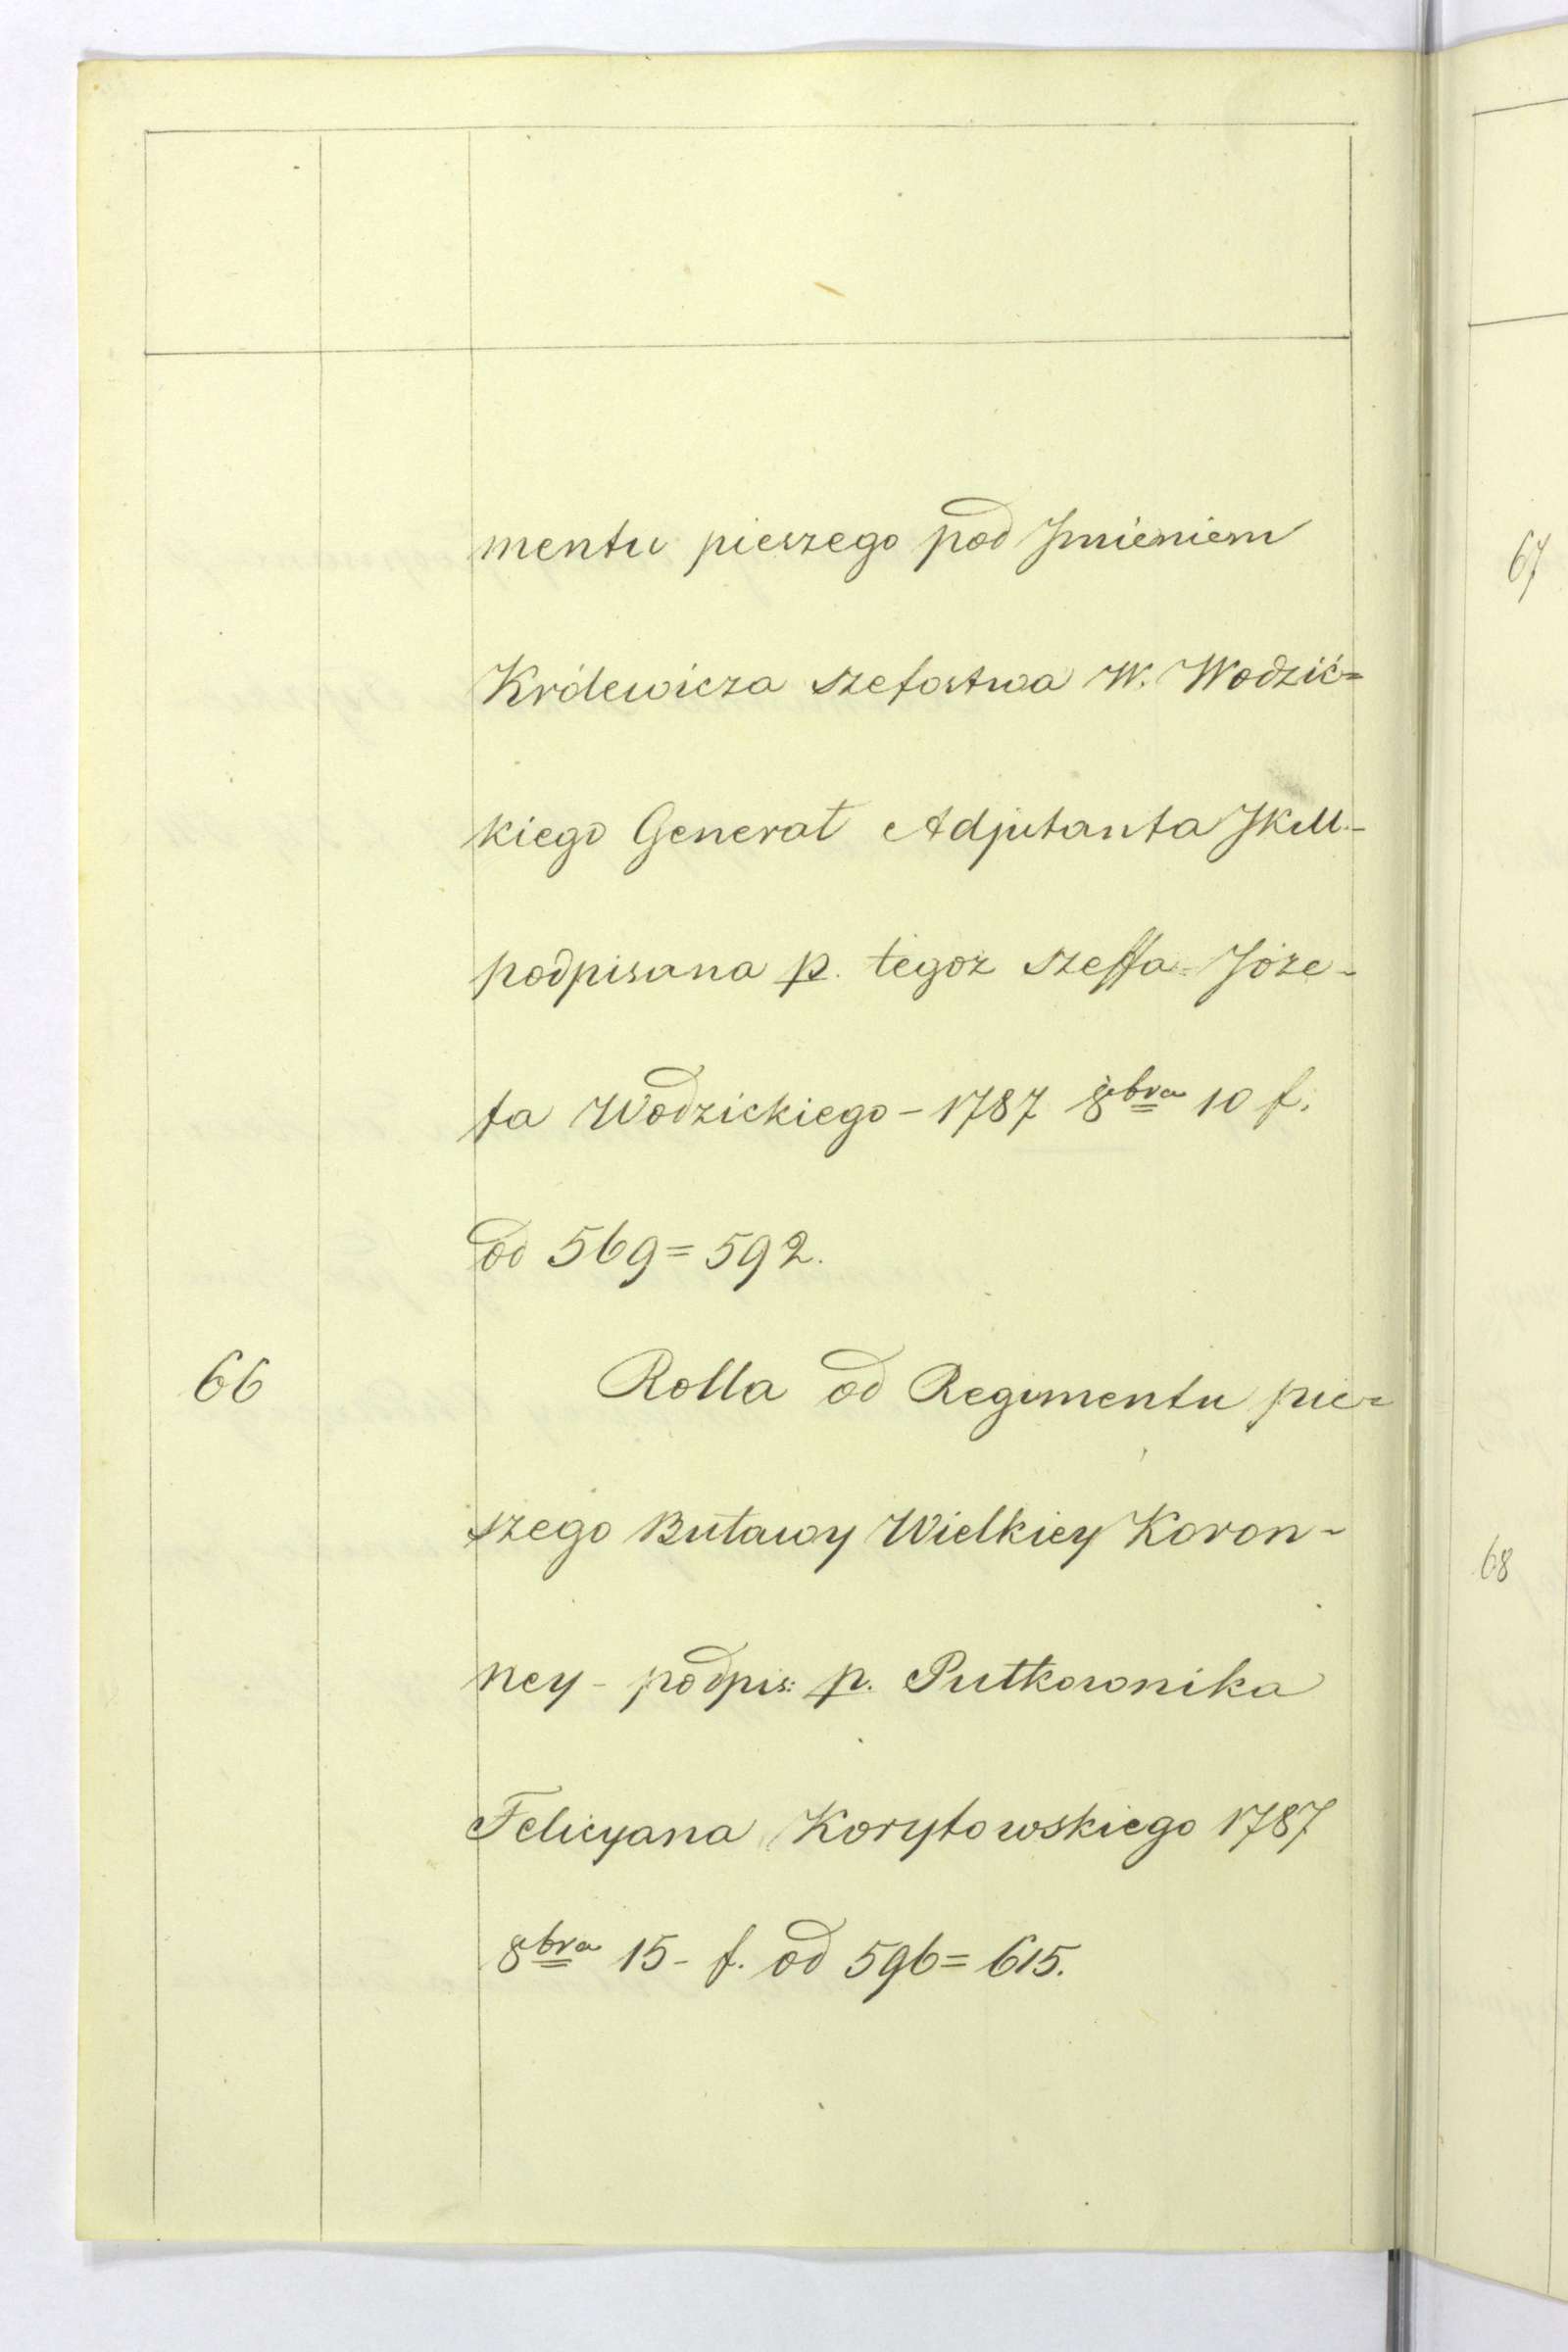 mentu pieszego pod Jmieniem
Królewicza szefostwa W. Wodzić=
kiego Generał Adjutanta JKM.-
podpisana p. tegoż szeffa Józe-
fa Wodzickiego - 1787 8bra 10 f.
od 569=592.
66 Rolla od Regimentu pie-
szego Buławy Wielkiey Koron-
ney - podpis: p. Pułkownika
Felicyana Korytowskiego 1787
8bra 15- f. od 596=615.
67
68